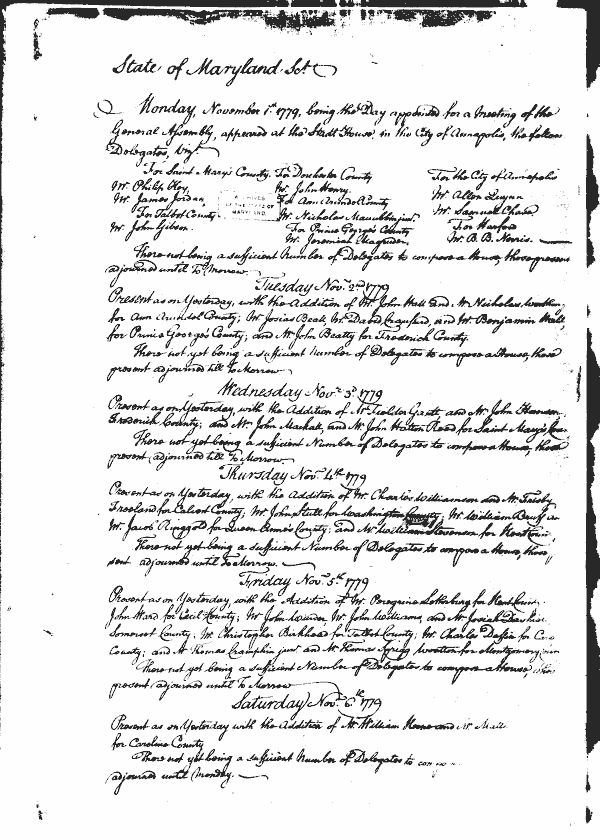 State of Maryland Sct.
Monday, November 1st 1779, being the Day appointed for a Meeting of the
General Assembly, appeared at the Stadt House, in the City of Annapolis, the follow
Delegates, Vizt.
For Saint Mary's County. For Dorchester County For the City of Annapolis
Mr. Philip Key, Mr. John Henry. Mr. Allen Quynn
Mr. James Jordan For Ann Arundel County Mr. Samuel Chase.
For Talbot County Mr. Nicholas Maccubbin junr. For Harford
Mr. John Gibson. For Prince George's County Mr. B. B. Norris.
Mr. Jeremiah Magruder.
MARYLAND
There not being a sufficient Number of Delegates to compose a House, those present
adjourned until To Morrow.
Tuesday Novr. 2d 1779
Present as on Yesterday, with the Addition of Mr. John Hall and Mr. Nicholas Worthing
for Ann Arundel County; Mr. Josias Beall, Mr. David Craufurd, and Mr. Benjamin Hall,
for Prince George's County; and Mr. John Beatty for Frederick County.
There not yet being a sufficient Number of Delegates to compose a House, those
present adjourned till To Morrow
Wednesday Novr. 3d 1779
Present as on Yesterday, with the Addition of Mr. Fielder Gantt, and Mr. John Hanson,
Frederick County; and Mr. John Mackall, and Mr. John Hatton Read for Saint Mary's
There not yet being a sufficient Number of Delegates to compose a House, those
present adjourned till To Morrow.
Thursday Novr. 4th 1779
Present as on Yesterday, with the Addition of Mr. Charles Williamson and Mr. Frisby
Freeland for Calvert County; Mr. John Stull for Washington County; Mr. William
Mr. Jacob Ringgold for Queen Anne's County; and Mr. William Stevenson for Kent
There not yet being a sufficient Number of Delegates to compose a House, those
sent adjourned until To Morrow.
Friday Novr. 5th 1779
Present as on Yesterday, with the Addition of Mr. Peregrine Letherbury for Kent County
John Ward for Cecil County; Mr. John Winder, Mr. John Williams, and Mr. Josiah
Somerset County; Mr. Christopher Birkhead for Talbot County; Mr. Charles for
County; and Mr. Thomas Cramphin junr and Mr. Thomas Sprigg Wootton for Montgomery
There not yet being a sufficient Number of Delegates to compose a House,
present adjourned until To Morrow
Saturday Novr. 6th 1779
Present as on Yesterday with the Addition of Mr. William Keene and Mr.
for Caroline County
There not yet being a sufficient Number of Delegates to
adjourned until Monday.